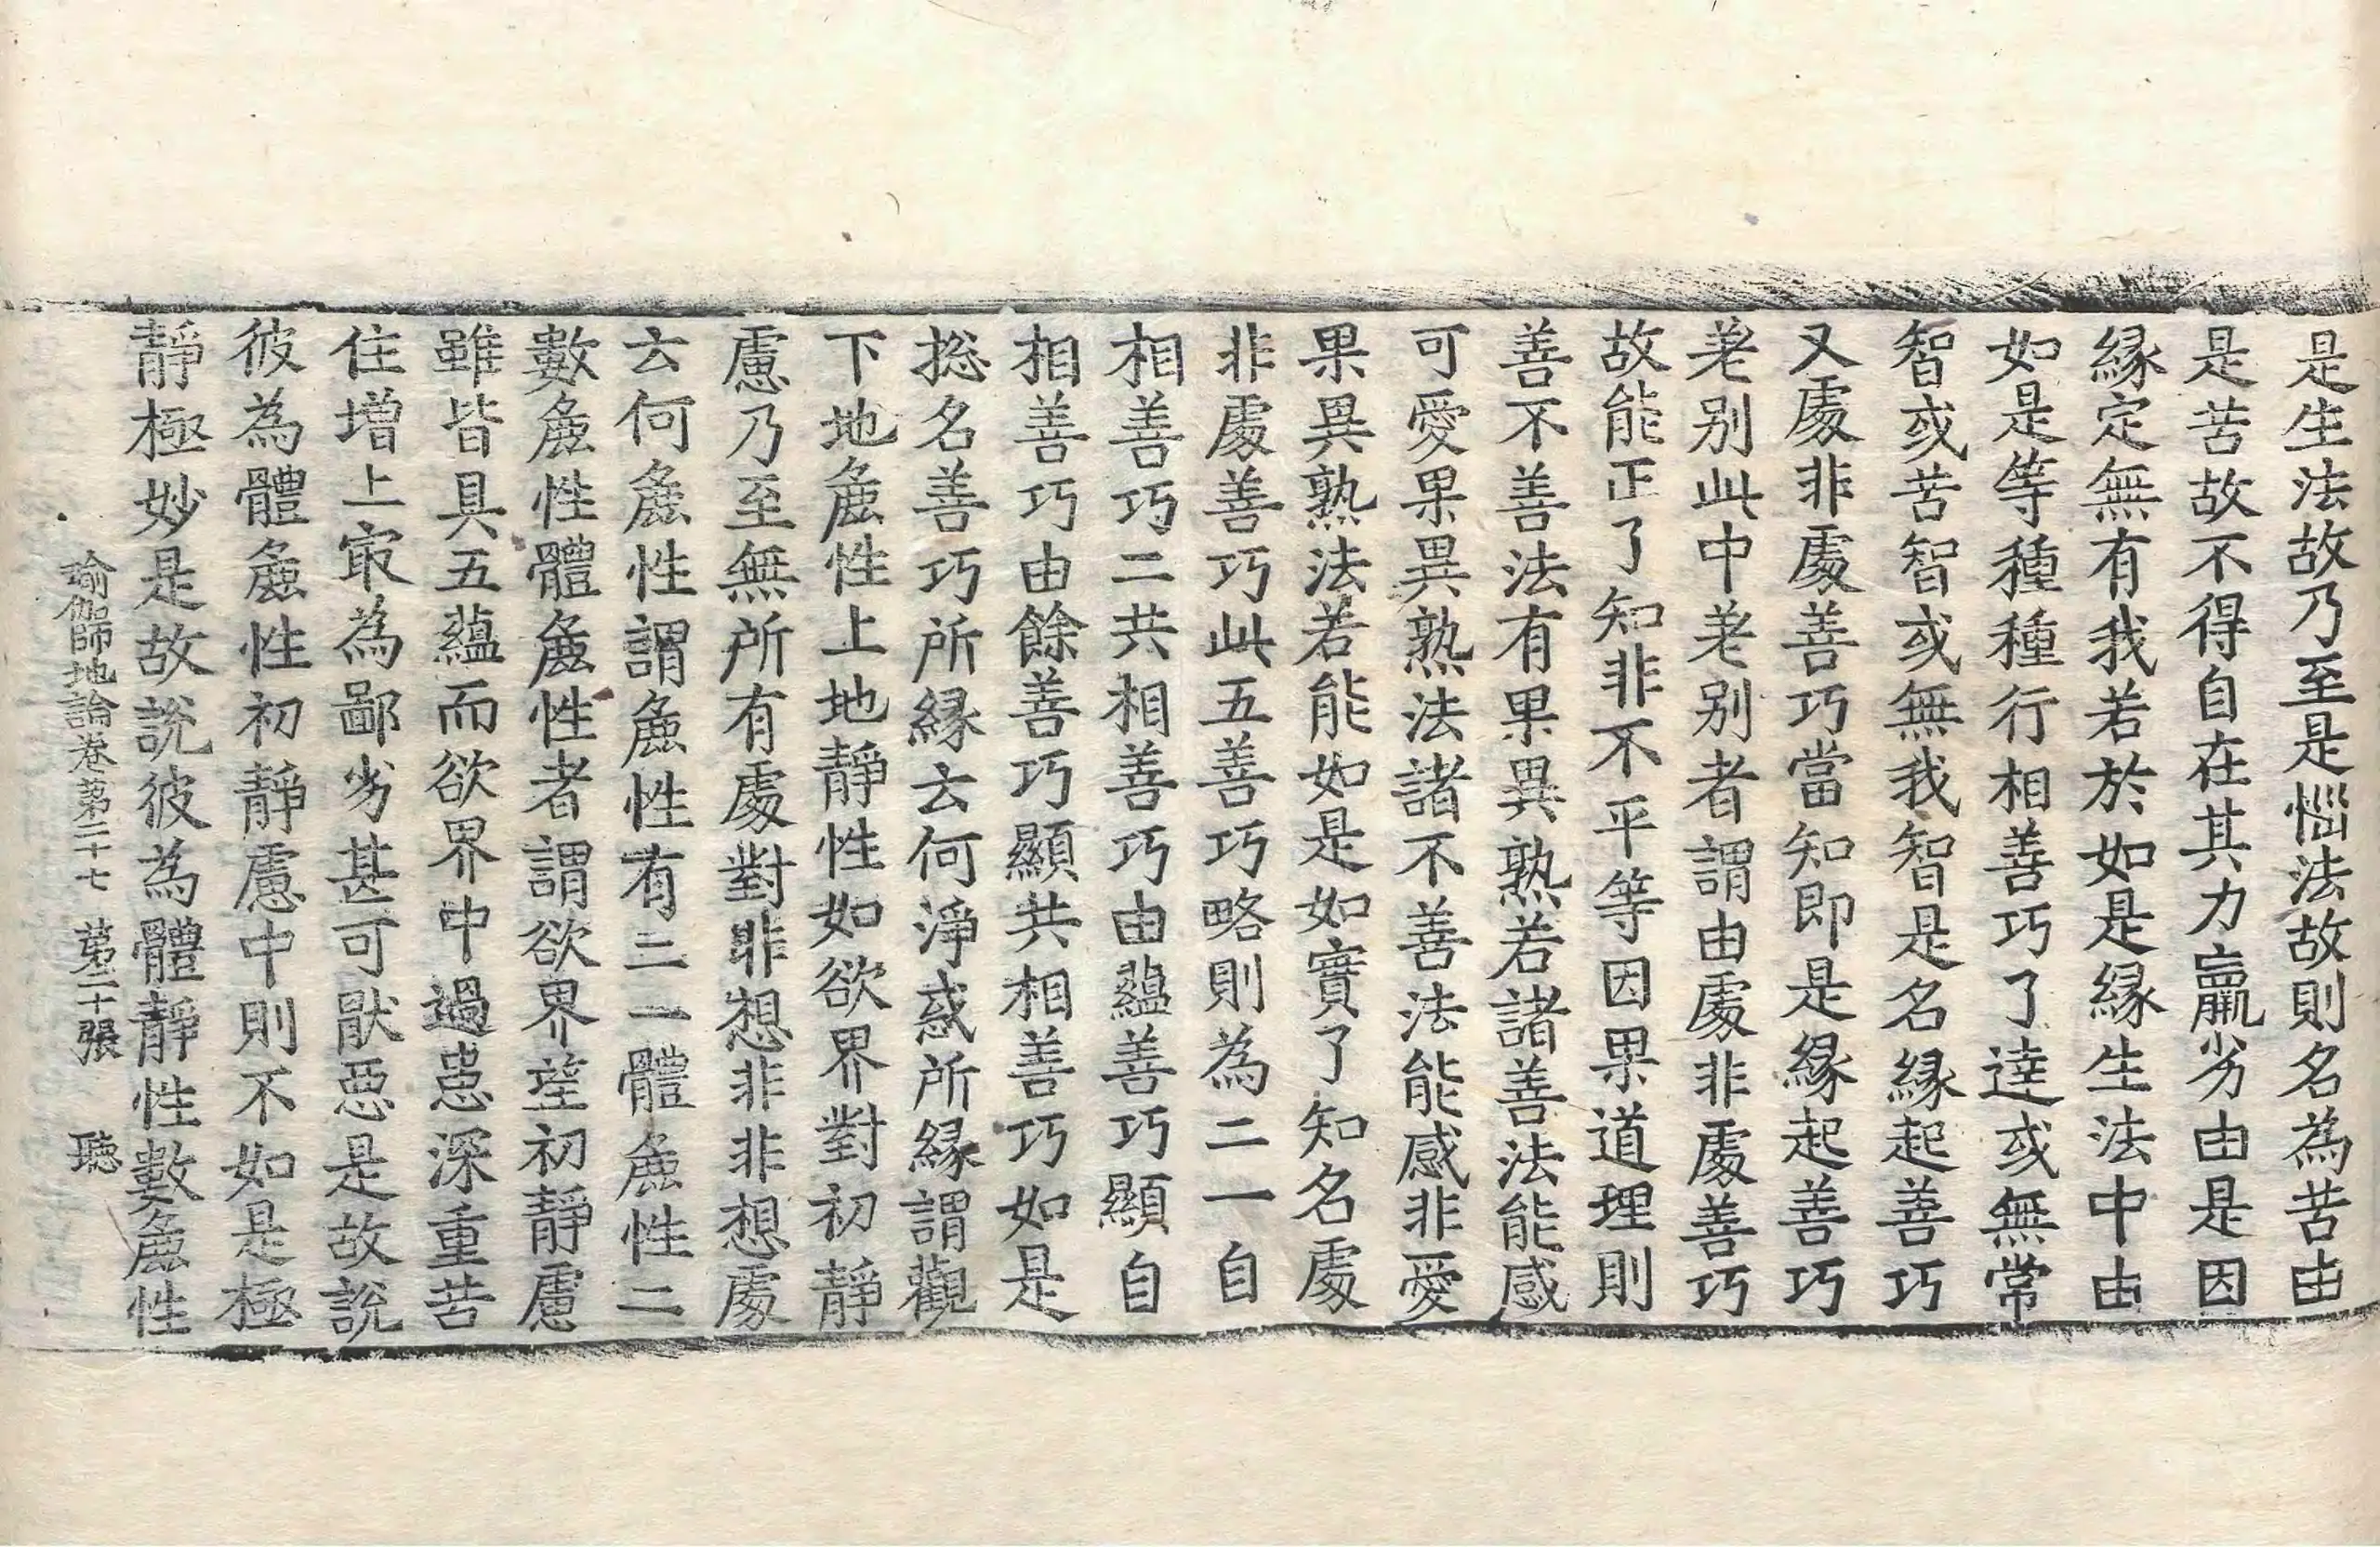 是生法故乃至是惱法故則名為苦由
是苦故不得自在其力羸劣由是因
縁定無有我若於如是縁生法中由
如是等種種行相善巧了達或無常
智或苦智或無我智是名縁起善巧
又處非處善巧當知即是縁起善巧
差别此中差别者謂由處非處善巧
故能正了知非不平等因果道理則
善不善法有果異熟若諸善法能感
可愛果異熟法諸不善法能感非愛
果異熟法若能如是如實了知名處
非處善巧此五善巧略則為二一自
相善巧二共相善巧由蘊善巧顯自
相善巧由餘善巧顯共相善巧如是
捴名善巧所縁云何淨惑所縁謂觀
下地麁性上地靜性如欲界對初靜
慮乃至無所有處對非想非非想處
云何麁性謂麁性有二一體麁性二
數麁性體麁性者謂欲界望初靜慮
雖皆具五蘊而欲界中過患深重苦
住增上㝡為鄙劣甚可猒惡是故說
彼為體麁性初靜慮中則不如是極
靜極妙是故說彼為體靜性數麁性
瑜伽師地論卷第二十七 第二十張 聽